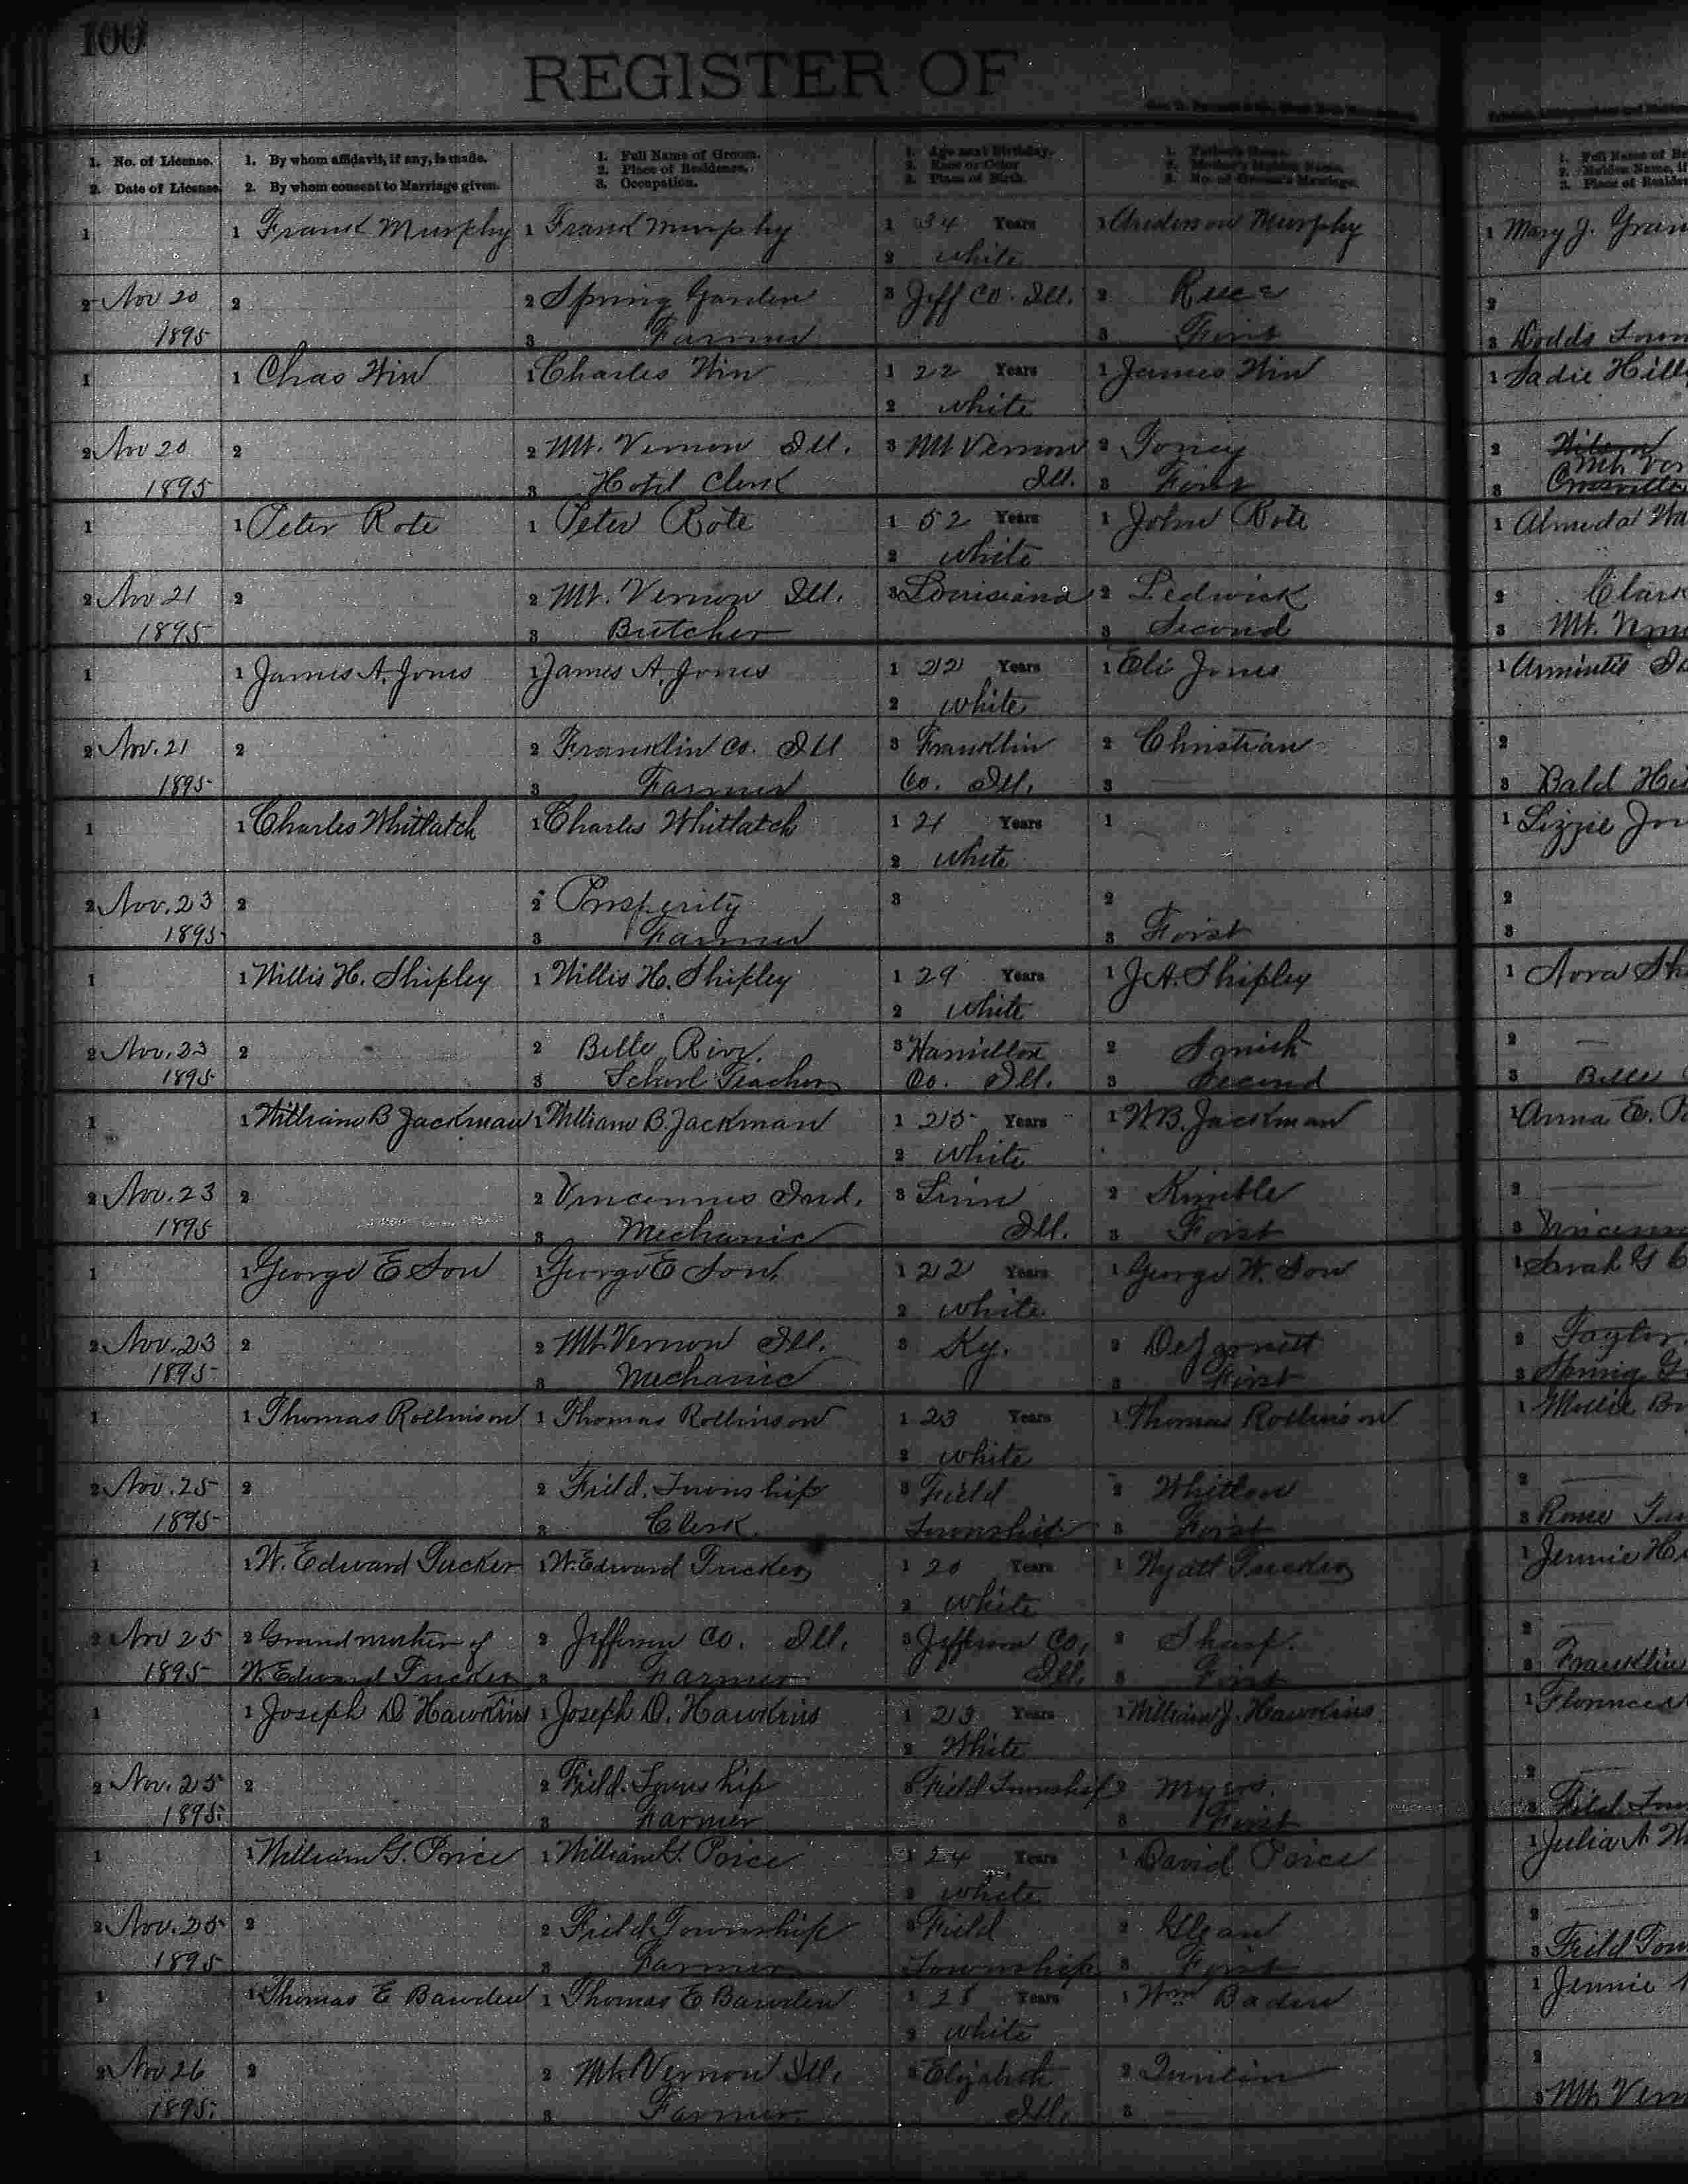 100
REGISTER OF
1. No. of License.
2. Date of License.
1. By whom affidavit, if any, is made.
2. By whom consent to Marriage given.
1. Full Name of Groom.
2. Place of Residence.
3. Occupation.
1. Age next Birthday.
2. Race or Color
3. Place of Birth.
1. Father's Name.
2. Mother's Maiden Name.
3. No. of Groom's Marriage.
1 1 Frank Murphy 1 Frank Murphy 1 34 Years 1 Murphy 1 Mary J.
2 white
2 Nov 20 2 2 Spring Garden 3 Jeff Co. Ill. 2 2
1895 3 Farmer 3 First 3 Dodds
1 1 Chas Win 1 Charles Win 1 22 Years 1 James Win 1 Sadie
2 white
2 Nov 20 2 2 Mt. Vernon Ill. 3 Mt Vernon 2 Toney 2
1895 3 Hotel Clerk Ill. 3 First 3
1 1 Peter Rote 1 Peter Rote 1 52 Years 1 John Rote 1 Almeda
2 white
2 Nov 21 2 2 Mt. Vernon Ill. 3 Louisiana 2 Ledwick 2 Clark
1895 3 Butcher 3 Second 3 Mt.
1 1 James A. Jones 1 James A. Jones 1 22 Years 1 Eli Jones 1
2 white
2 Nov. 21 2 2 Franklin Co. Ill 3 Franklin 2 Christian 2
1895 3 Farmer Co. Ill. 3 3 Bald
1 1 Charles Whitlatch 1 Charles Whitlatch 1 21 Years 1 1 Lizzie
2 white
2 Nov. 23 2 2 Prosperity 3 2 2
1895 3 Farmer 3 First 3
1 1 Willis H. Shipley 1 Willis H. Shipley 1 29 Years 1 J A. Shipley 1 Nora
2 white
2 Nov. 23 2 2 Belle Rive. 3 Hamilton 2 Smith 2 —
1895 3 School Teacher Co. Ill. 3 Second 3 Belle
1 1 William B Jackman 1 William B. Jackman 1 25 Years 1 W. B. Jackman 1 Anna E.
2 white
2 Nov. 23 2 2 Vincennes Ind. 3 2 Kimble 2 —
1895 3 Mechanic Ill. 3 First 3
1 1 George E Son 1 George E Son 1 22 Years 1 George W. Son 1 Sarah
2 white
2 Nov. 23 2 2 Mt. Vernon Ill. 3 Ky. 2 2 Taylor
1895 3 Mechanic 3 First 3 Spring
1 1 Thomas Rollinson 1 Thomas Rollinson 1 23 Years 1 Thomas Rollinson 1 Mollie
2 white
2 Nov. 25 2 2 Field. Township 3 Field 2 Whitlow 2 —
1895 3 Clerk. Township 3 First 3 Rome
1 1 W. Edward Tucker 1 W. Edward Tucker 1 20 Years 1 Wyatt Tucker 1 Jennie
2 white
2 Nov 25 2 Grandmother of 2 Jefferson Co. Ill. 3 Jefferson Co, 2 Sharp. 2 —
1895 W. Edward Tucker 3 Farmer Ill. 3 First 3 Franklin
1 1 Joseph D Hawkins 1 Joseph D. Hawkins 1 23 Years 1 William J. Hawkins 1 Florence
2 White
2 Nov. 25 2 2 Field. Township 3 Field Township 2 Myers. 2 —
1895. 3 Farmer 3 First 3 Field
1 1 William G. Price 1 William G. Price 1 24 Years 1 David Price 1 Julia A
2 white
2 Nov. 25 2 2 Field Township 3 Field 2 2
1895 3 Farmer Township 3 First 3 Field
1 1 Thomas E Bawden 1 Thomas E Bawden 1 28 Years 1 Wm 1 Jennie
2 white
2 Nov 26 2 2 Mt. Vernon Ill. 3 Elizabeth 2 2
1895. 3 Farmer. Ill. 3 3 Mt.